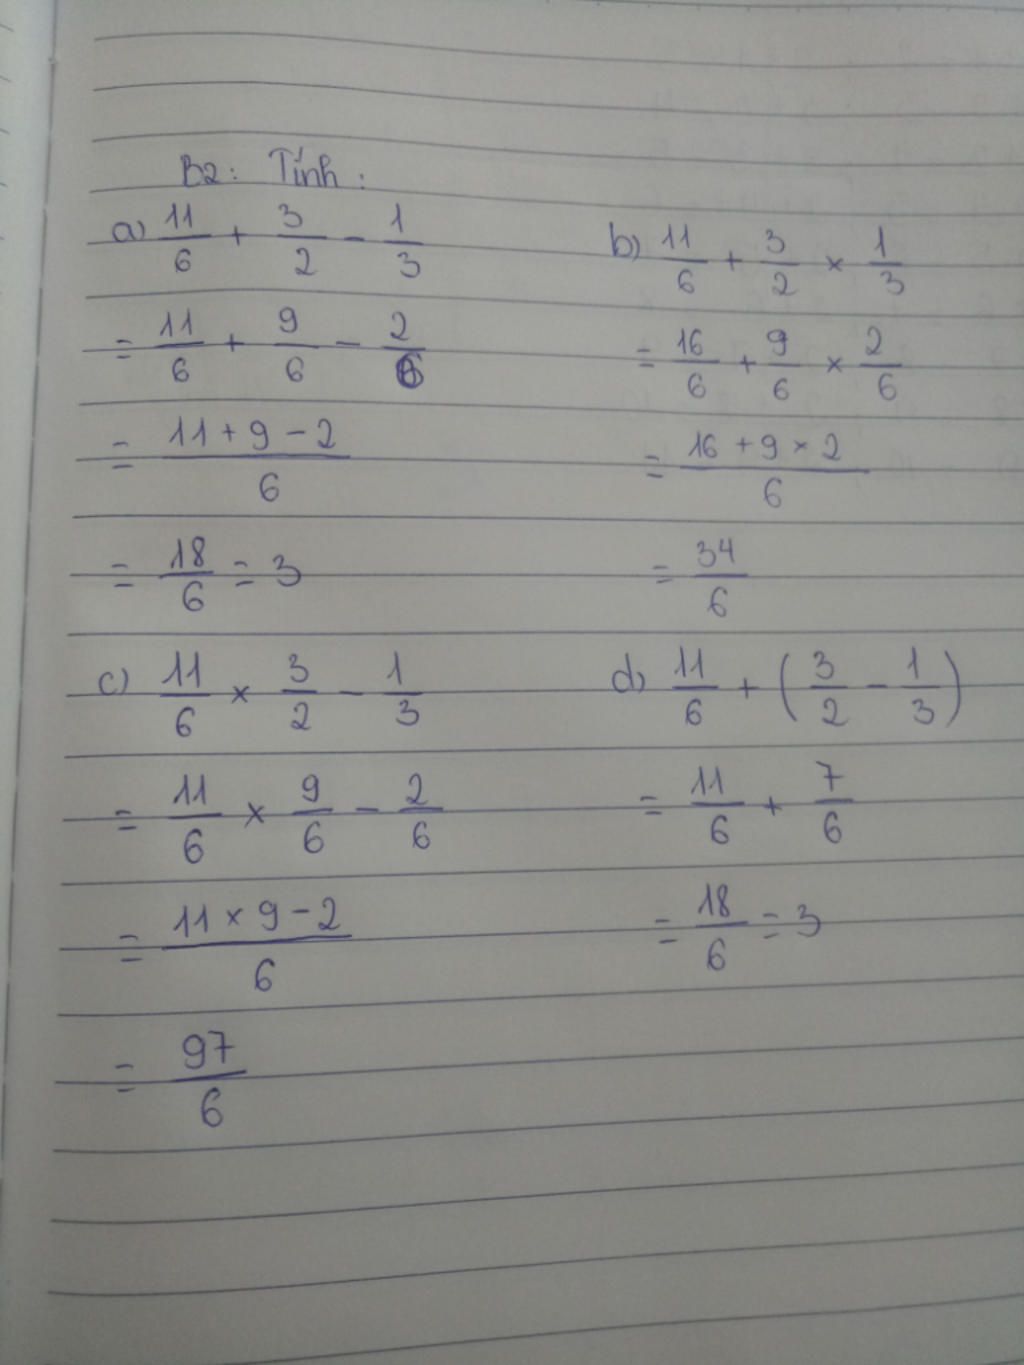 B2: Tính:
a) 11/6 + 3/2 - 1/3
= 11/6 + 9/6 - 2/6
= (11 + 9 - 2)/6
= 18/6 = 3
b) 11/6 + 3/2 × 1/3
= 16/6 + 9/6 × 2/6
= (16 + 9 × 2)/6
= 34/6
c) 11/6 × 3/2 - 1/3
= 11/6 × 9/6 - 2/6
= (11 × 9 - 2)/6
= 97/6
d) 11/6 + (3/2 - 1/3)
= 11/6 + 7/6
= 18/6 = 3